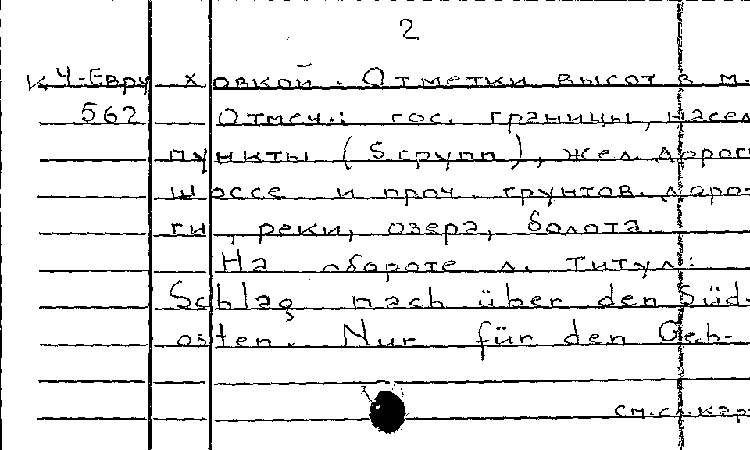 2
К Ч-Евру ховкой. Отметки высот в м.
562 Отмеч.: гос. границы, насел.
пункты (5 групп), жел. дорог
шоссе и проч. грунтов. доро-
ги, реки, озера, болота.
На обороте л. титул:
Schlag nach über den Süd-
osten. Nur für den Geb-
см.сл.кар